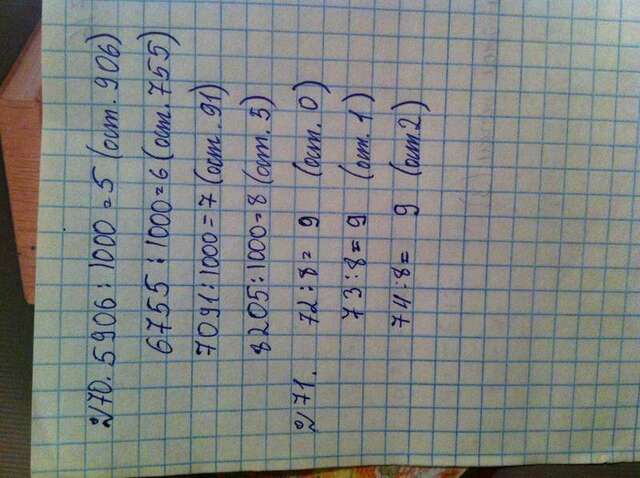 270. 5906 : 1000 = 5 (ост. 906)
6755 : 1000 = 6 (ост. 755)
7091 : 1000 = 7 (ост. 91)
8205 : 1000 = 8 (ост. 5)
271. 72 : 8 = 9 (ост. 0)
73 : 8 = 9 (ост. 1)
74 : 8 = 9 (ост 2)